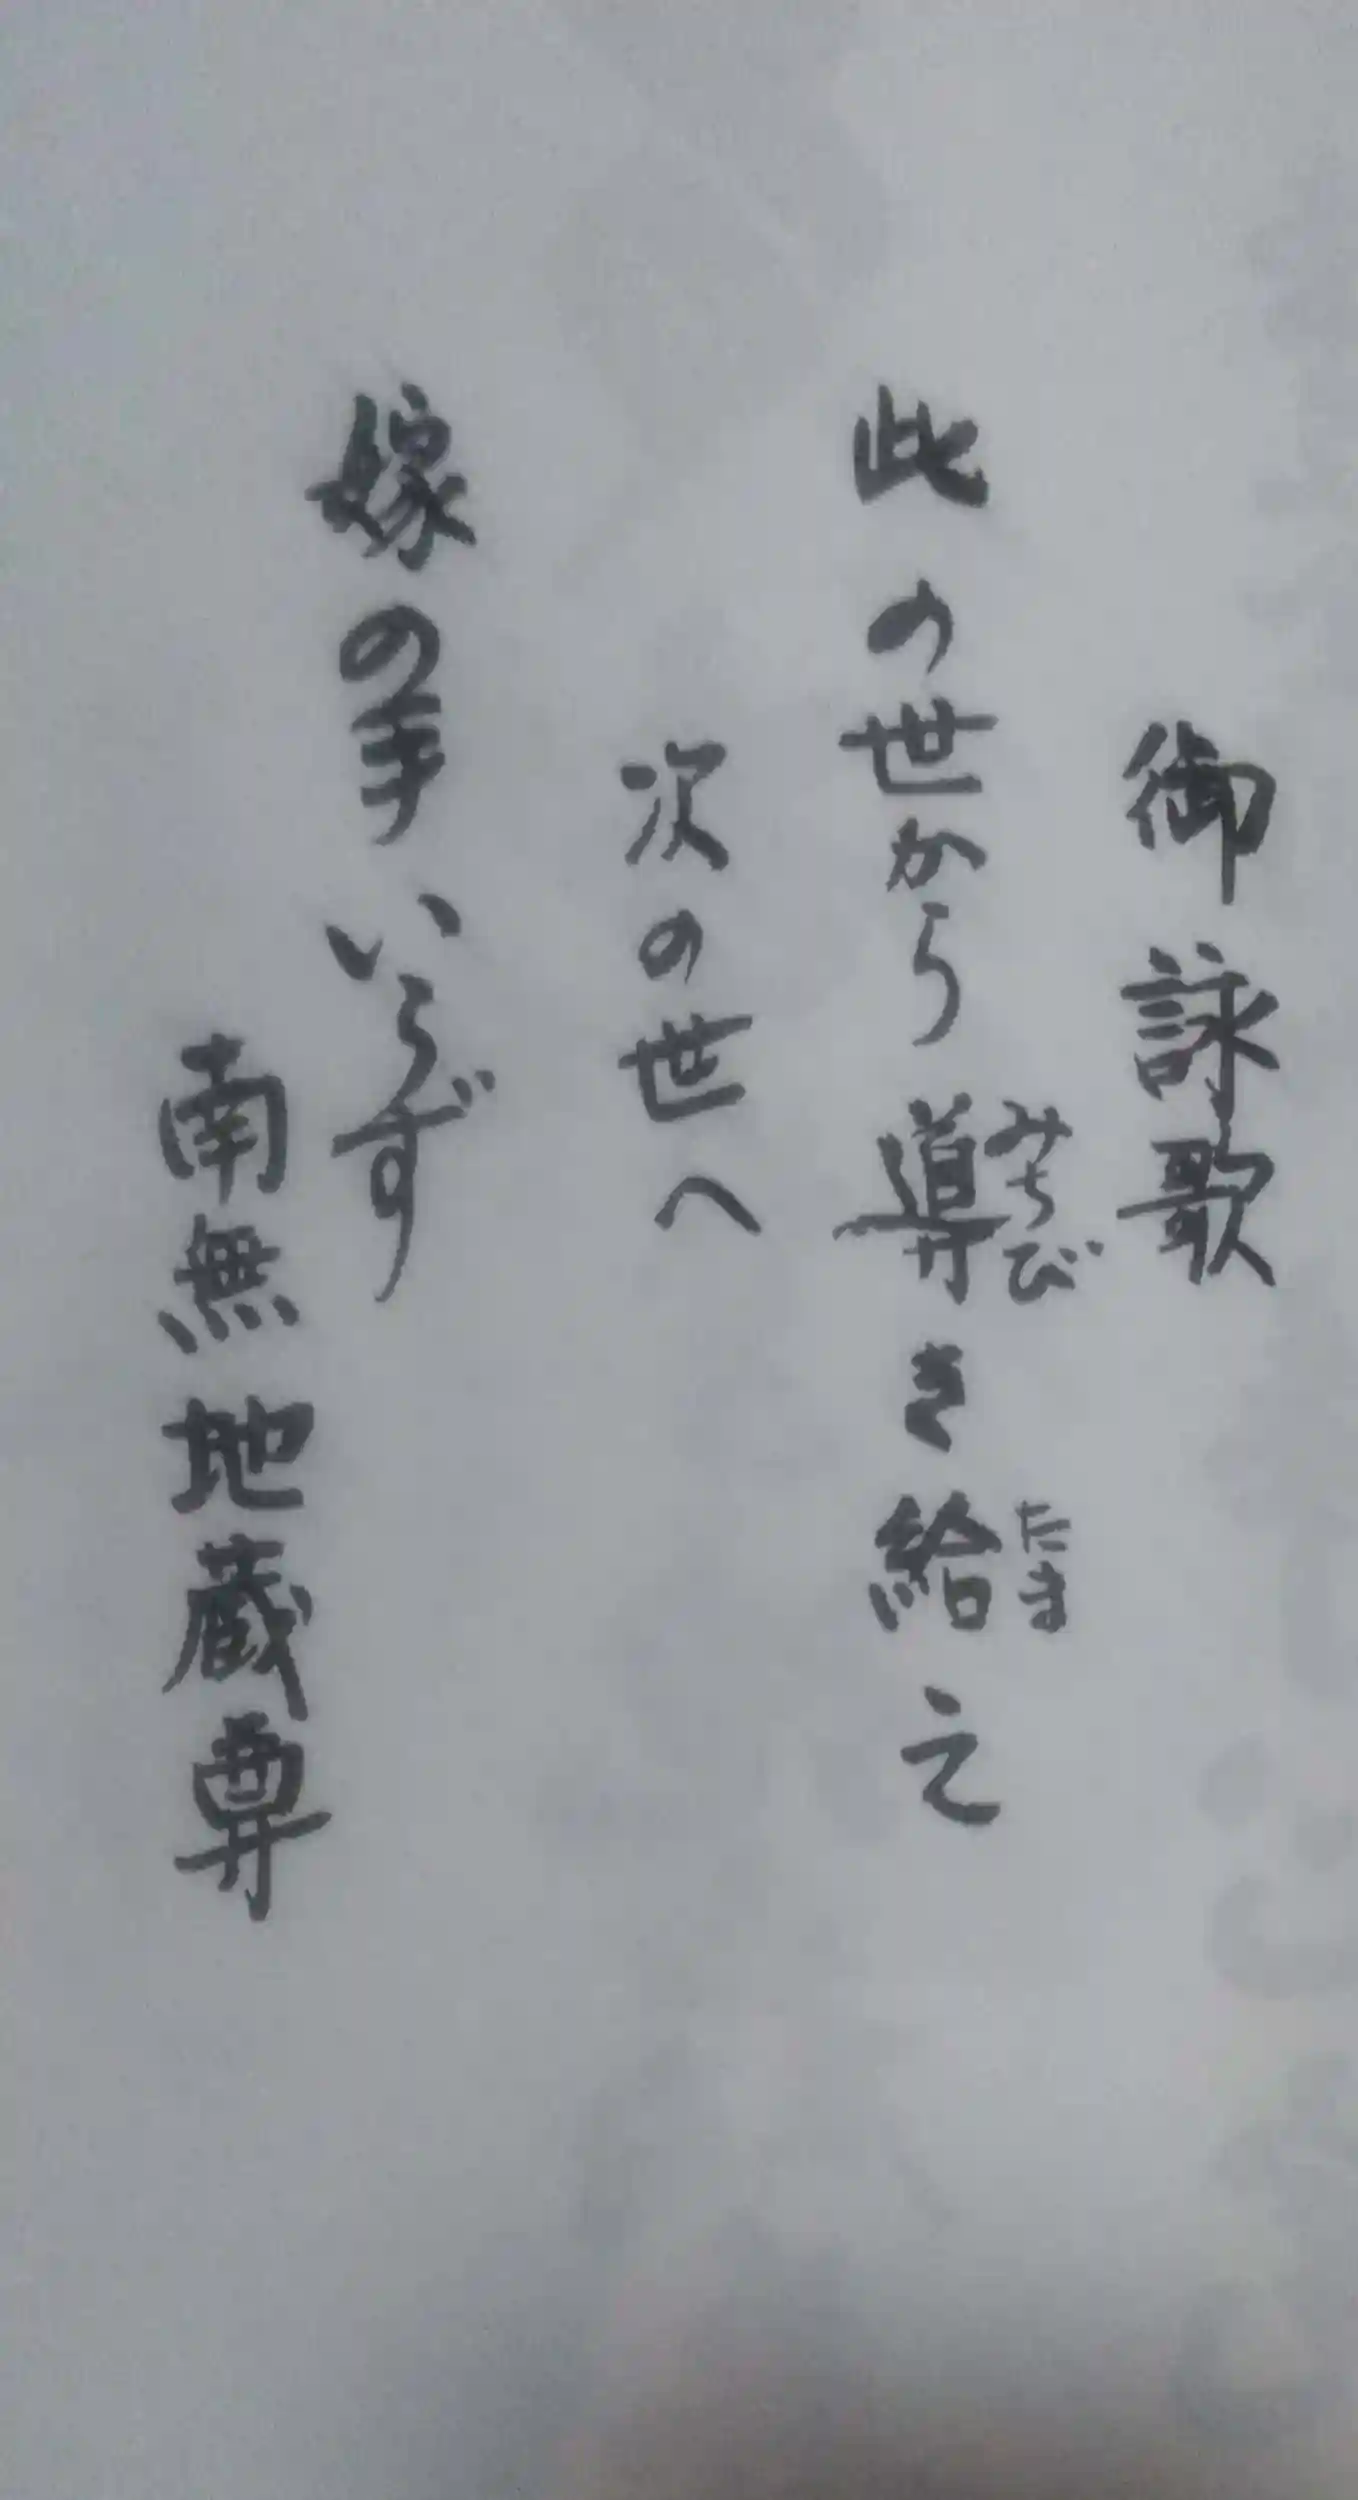 御詠歌
此の世から導き給え
みちび
たま
次の世へ
嫁の手いらず
南無地蔵尊